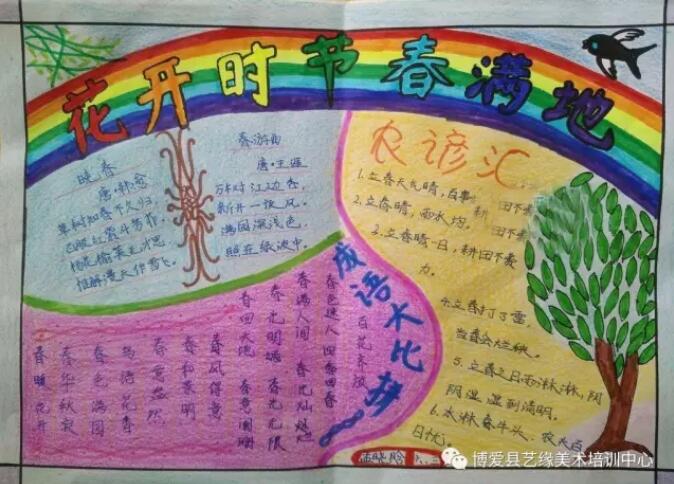 花开时节春满地
晚春
唐·韩愈
草树知春不久归,
百般红紫斗芳菲。
杨花榆荚无才思,
惟解漫天作雪飞。
春游曲
唐·王涯
万树江边杏,
新开一夜风。
满园深浅色,
照在绿波中。
农谚汇
1.立春天气晴,百事
耕田不费
2.立春晴,雨水均。
2.立春晴一日,耕田不费
力。
4.立春打了雷,
当春会烂秧。
5.立春之日雨淋淋,阴
阴湿湿到清明。
6.水淋春牛头,农夫百
日忧。
成语大比拼
百花齐放
春色迷人 四季回春
春满人间 春色灿烂
春光明媚 春光无限
春回大地 春意阑珊
春风得意
春和景明
春意盎然
鸟语花香
春色满园
春华秋实
春暖花开
博爱县艺缘美术培训中心